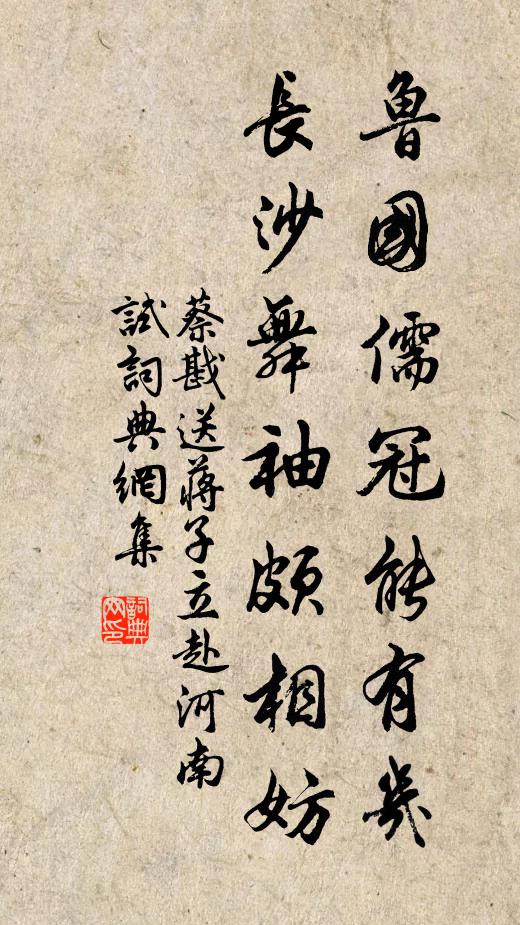 魯國儒冠能有幾
長沙舞袖頗相妨
蔡戡送蔣子立赴河南
試詞典網集
詞典
网印